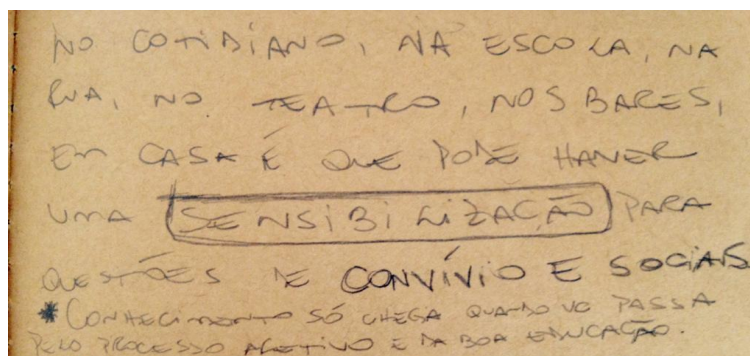 NO COTIDIANO, NA ESCOLA, NA
RUA, NO TEATRO, NOS BARES,
EM CASA É QUE PODE HAVER
UMA SENSIBILIZAÇÃO PARA
QUESTÕES DE CONVÍVIO E SOCIAIS
* CONHECIMENTO SÓ CHEGA QUANDO VC PASSA
PELO PROCESSO AFETIVO E DA BOA EDUCAÇÃO.